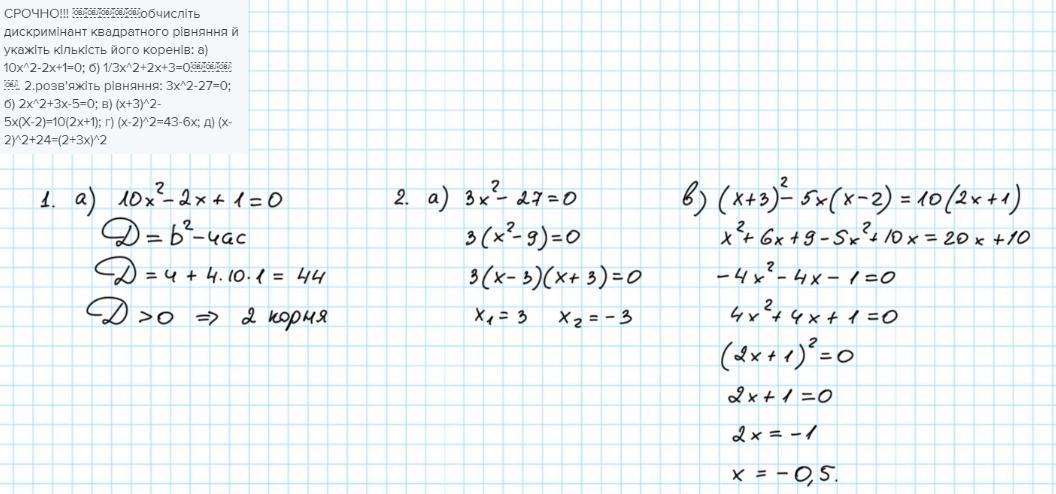 СРОЧНО!!! обчисліть
дискримінант квадратного рівняння й
укажіть кількість його коренів: а)
10х^2-2х+1=0; б) 1/3х^2+2х+3=0
. 2.розв'яжіть рівняння: 3х^2-27=0;
б) 2х^2+3х-5=0; в) (х+3)^2-
5х(Х-2)=10(2х+1); г) (х-2)^2=43-6х; д) (х-
2)^2+24=(2+3х)^2
1. а) 10x² - 2x + 1 = 0
D = b² - 4ac
D = 4 + 4.10.1 = 44
D > 0 ⇒ 2 корня
2. а) 3x² - 27 = 0
3(x² - 9) = 0
3(x - 3)(x + 3) = 0
x₁ = 3 x₂ = -3
в) (x+3)² - 5x(x-2) = 10(2x+1)
x² + 6x + 9 - 5x² + 10x = 20x + 10
-4x² - 4x - 1 = 0
4x² + 4x + 1 = 0
(2x + 1)² = 0
2x + 1 = 0
2x = -1
x = -0,5.